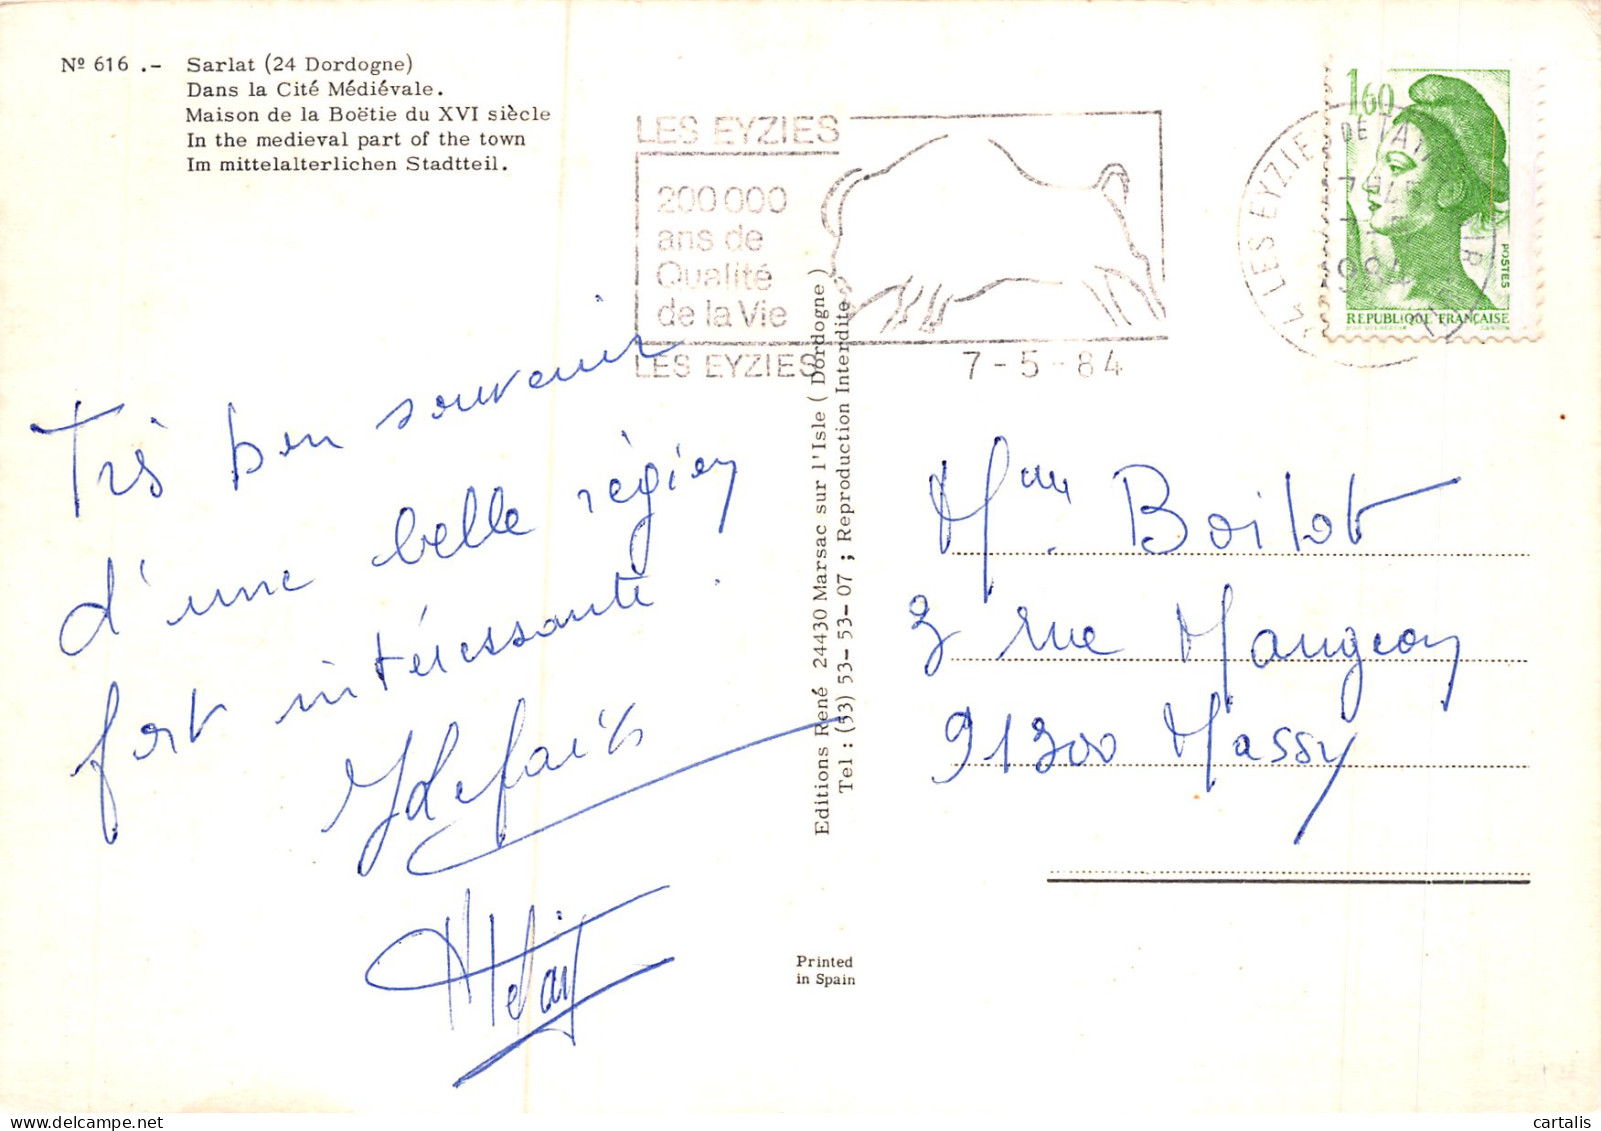 Nº 616 .- Sarlat (24 Dordogne)
Dans la Cité Médiévale.
Maison de la Boëtie du XVI siècle
In the medieval part of the town
Im mittelalterlichen Stadtteil.
LES EYZIES
200 000
ans de
Qualité
de la Vie
LES EYZIES
7-5-84
24 LES EYZIES DE TAYAC
1984
1,60
POSTES
REPUBLIQUE FRANÇAISE
Très bon souvenir
d'une belle région
fort intéressante.
Mme Boilot
3 rue Maugeon
91300 Massy
Editions René 24430 Marsac sur l'Isle ( Dordogne )
Tel : (53) 53- 53- 07 ; Reproduction Interdite
Printed
in Spain
cartalis